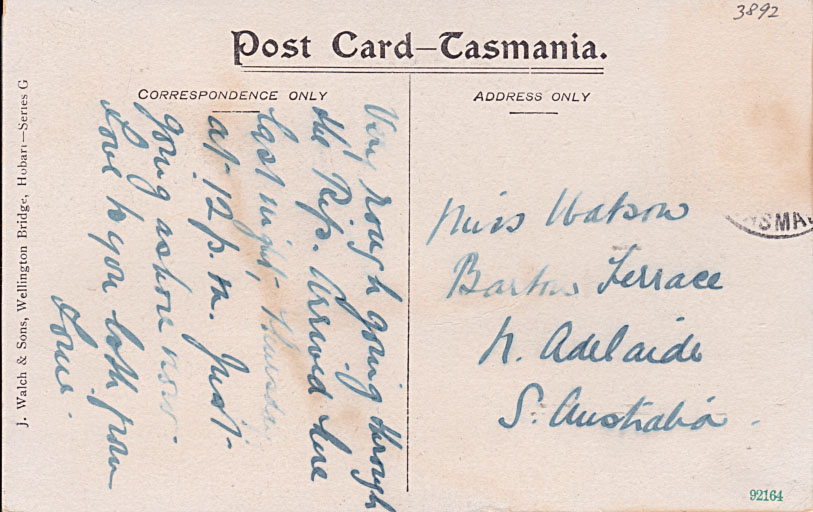 3892
Post Card–Tasmania.
CORRESPONDENCE ONLY
ADDRESS ONLY
J. Walch & Sons, Wellington Bridge, Hobart—Series G
Very rough going through
the Rip. Arrived here
last night, Thursday
at 12 p.m. Just
going ashore now
Love to you both from
Miss Watson
Barton Terrace
N. Adelaide
S. Australia.
ASMA
92164